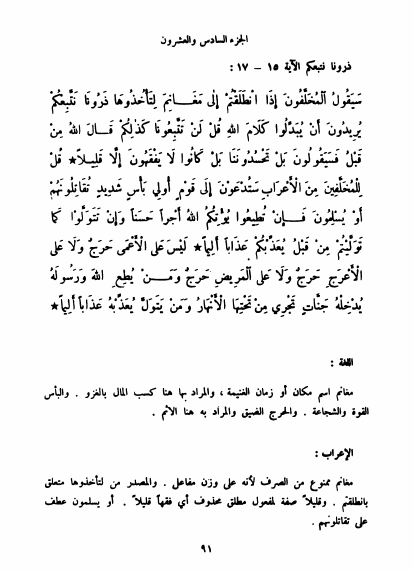 الجزء السادس والعشرون
ذرونا نتبعكم الآية ١٥ – ١٧ :
سَيَقُولُ ٱلْمُخَلَّفُونَ إِذَا ٱنْطَلَقْتُمْ إِلَى مَغَانِمَ لِتَأْخُذُوهَا ذَرُونَا نَتَّبِعْكُمْ
يُرِيدُونَ أَنْ يُبَدِّلُوا كَلَامَ اللهِ قُلْ لَنْ تَتَّبِعُونَا كَذَلِكُمْ قَالَ اللهُ مِنْ
قَبْلُ فَسَيَقُولُونَ بَلْ تَحْسُدُونَنَا بَلْ كَانُوا لَا يَفْقَهُونَ إِلَّا قَلِيلاً★ قُلْ
لِلْمُخَلَّفِينَ مِنَ الْأَعْرَابِ سَتُدْعَوْنَ إِلَى قَوْمٍ أُولِي بَأْسٍ شَدِيدٍ تُقَاتِلُونَهُمْ
أَوْ يُسْلِمُونَ فَإِنْ تُطِيعُوا يُؤْتِكُمُ اللهُ أَجْراً حَسَناً وَإِنْ تَتَوَلَّوْا كَمَا
تَوَلَّيْتُمْ مِنْ قَبْلُ يُعَذِّبْكُمْ عَذَاباً أَلِيماً★ لَيْسَ عَلَى الْأَعْمَى حَرَجٌ وَلَا عَلَى
الْأَعْرَجِ حَرَجٌ وَلَا عَلَى الْمَرِيضِ حَرَجٌ وَمَنْ يُطِعِ اللهَ وَرَسُولَهُ
يُدْخِلْهُ جَنَّاتٍ تَجْرِي مِنْ تَحْتِهَا الْأَنْهَارُ وَمَنْ يَتَوَلَّ يُعَذِّبْهُ عَذَاباً أَلِيماً★
اللغة :
مغانم اسم مكان أو زمان الغنيمة ، والمراد بها هنا كسب المال بالغزو . والبأس
القوة والشجاعة . والحرج الضيق والمراد به هنا الاثم .
الإعراب :
مغانم ممنوع من الصرف لأنه على وزن مفاعل . والمصدر من لتأخذوها متعلق
بانطلقتم . وقليلاً صفة لمفعول مطلق محذوف أي فقهاً قليلاً . أو يسلمون عطف
على تقاتلونهم .
٩١